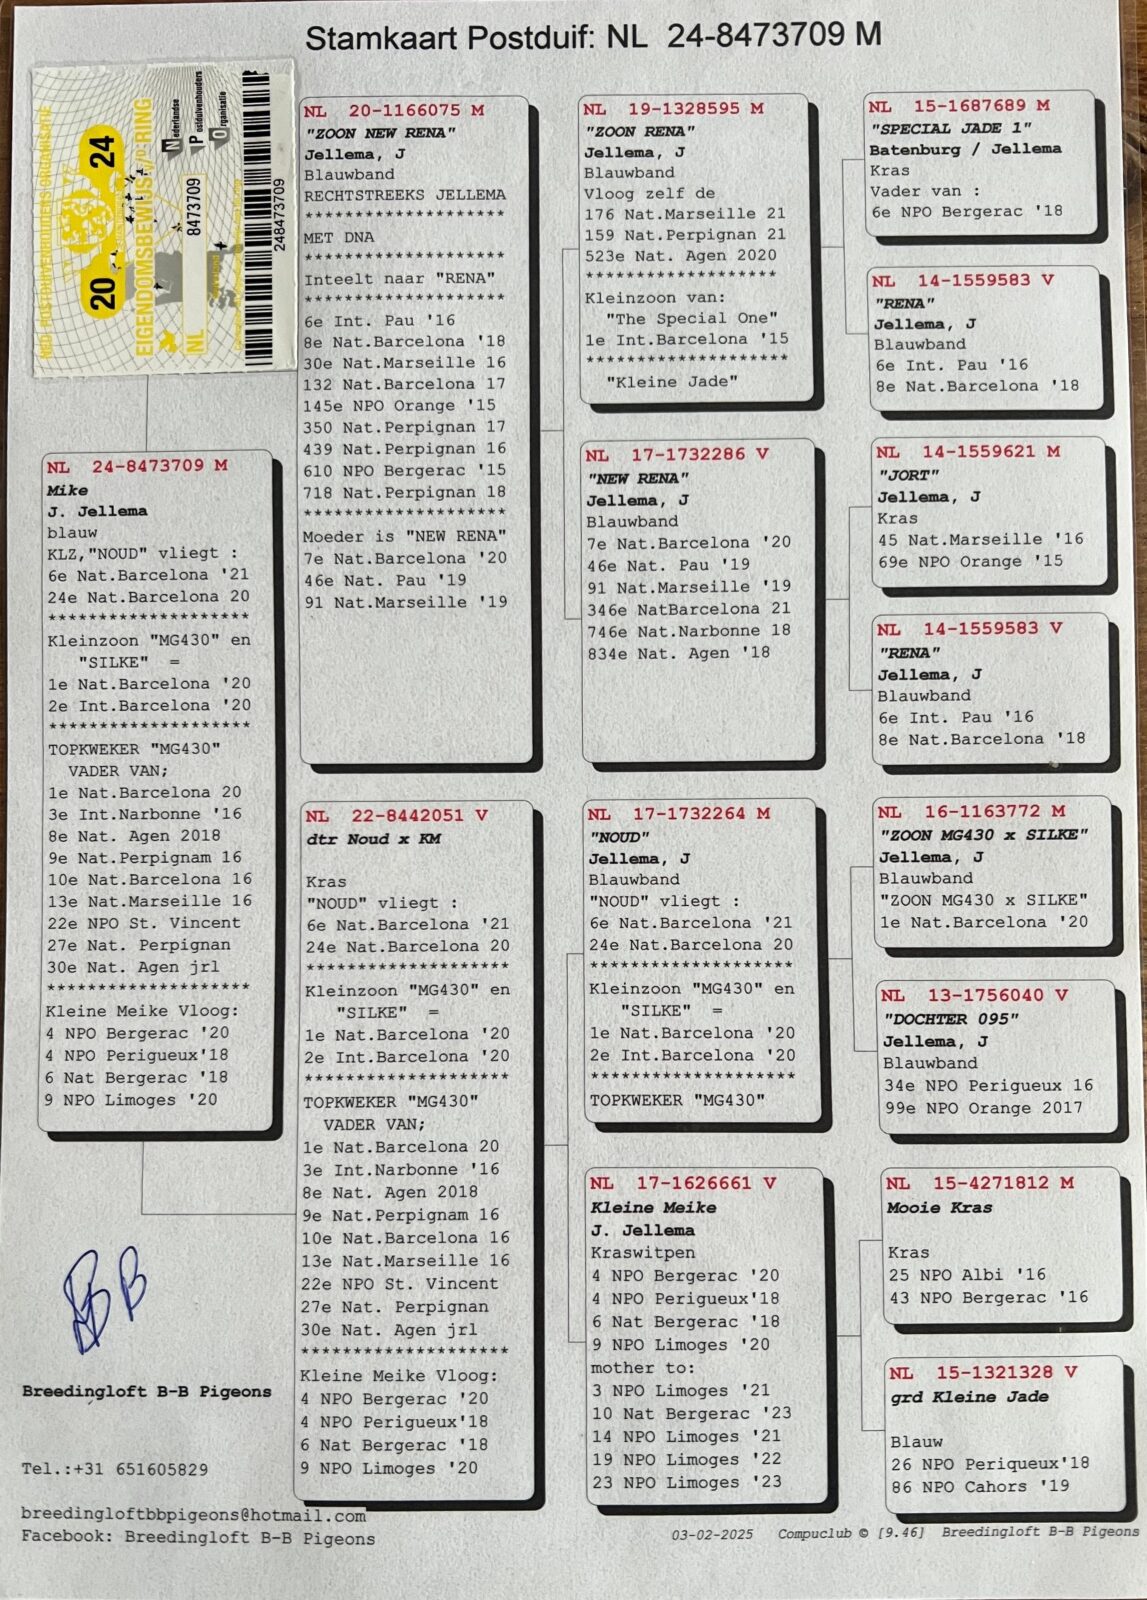 Stamkaart Postduif: NL 24-8473709 M
NED. POSTDUIVENHOUDERS ORGANISATIE
20 24
EIGENDOMSBEWIJS V/D RING
NL 8473709
Nederlandse
Postduivenhouders
Organisatie
248473709
NL 24-8473709 M
Mike
J. Jellema
blauw
KLZ,"NOUD" vliegt :
6e Nat.Barcelona '21
24e Nat.Barcelona 20
********************
Kleinzoon "MG430" en
"SILKE" =
1e Nat.Barcelona '20
2e Int.Barcelona '20
********************
TOPKWEKER "MG430"
VADER VAN;
1e Nat.Barcelona 20
3e Int.Narbonne '16
8e Nat. Agen 2018
9e Nat.Perpignam 16
10e Nat.Barcelona 16
13e Nat.Marseille 16
22e NPO St. Vincent
27e Nat. Perpignan
30e Nat. Agen jrl
********************
Kleine Meike Vloog:
4 NPO Bergerac '20
4 NPO Perigueux'18
6 Nat Bergerac '18
9 NPO Limoges '20
NL 20-1166075 M
"ZOON NEW RENA"
Jellema, J
Blauwband
RECHTSTREEKS JELLEMA
********************
MET DNA
********************
Inteelt naar "RENA"
********************
6e Int. Pau '16
8e Nat.Barcelona '18
30e Nat.Marseille 16
132 Nat.Barcelona 17
145e NPO Orange '15
350 Nat.Perpignan 17
439 Nat.Perpignan 16
610 NPO Bergerac '15
718 Nat.Perpignan 18
********************
Moeder is "NEW RENA"
7e Nat.Barcelona '20
46e Nat. Pau '19
91 Nat.Marseille '19
NL 22-8442051 V
dtr Noud x KM
Kras
"NOUD" vliegt :
6e Nat.Barcelona '21
24e Nat.Barcelona 20
********************
Kleinzoon "MG430" en
"SILKE" =
1e Nat.Barcelona '20
2e Int.Barcelona '20
********************
TOPKWEKER "MG430"
VADER VAN;
1e Nat.Barcelona 20
3e Int.Narbonne '16
8e Nat. Agen 2018
9e Nat.Perpignam 16
10e Nat.Barcelona 16
13e Nat.Marseille 16
22e NPO St. Vincent
27e Nat. Perpignan
30e Nat. Agen jrl
********************
Kleine Meike Vloog:
4 NPO Bergerac '20
4 NPO Perigueux'18
6 Nat Bergerac '18
9 NPO Limoges '20
NL 19-1328595 M
"ZOON RENA"
Jellema, J
Blauwband
Vloog zelf de
176 Nat.Marseille 21
159 Nat.Perpignan 21
523e Nat. Agen 2020
*******************
Kleinzoon van:
"The Special One"
1e Int.Barcelona '15
********************
"Kleine Jade"
NL 17-1732286 V
"NEW RENA"
Jellema, J
Blauwband
7e Nat.Barcelona '20
46e Nat. Pau '19
91 Nat.Marseille '19
346e NatBarcelona 21
746e Nat.Narbonne 18
834e Nat. Agen '18
NL 17-1732264 M
"NOUD"
Jellema, J
Blauwband
"NOUD" vliegt :
6e Nat.Barcelona '21
24e Nat.Barcelona 20
********************
Kleinzoon "MG430" en
"SILKE" =
1e Nat.Barcelona '20
2e Int.Barcelona '20
********************
TOPKWEKER "MG430"
NL 17-1626661 V
Kleine Meike
J. Jellema
Kraswitpen
4 NPO Bergerac '20
4 NPO Perigueux'18
6 Nat Bergerac '18
9 NPO Limoges '20
mother to:
3 NPO Limoges '21
10 Nat Bergerac '23
14 NPO Limoges '21
19 NPO Limoges '22
23 NPO Limoges '23
NL 15-1687689 M
"SPECIAL JADE 1"
Batenburg / Jellema
Kras
Vader van :
6e NPO Bergerac '18
NL 14-1559583 V
"RENA"
Jellema, J
Blauwband
6e Int. Pau '16
8e Nat.Barcelona '18
NL 14-1559621 M
"JORT"
Jellema, J
Kras
45 Nat.Marseille '16
69e NPO Orange '15
NL 14-1559583 V
"RENA"
Jellema, J
Blauwband
6e Int. Pau '16
8e Nat.Barcelona '18
NL 16-1163772 M
"ZOON MG430 x SILKE"
Jellema, J
Blauwband
"ZOON MG430 x SILKE"
1e Nat.Barcelona '20
NL 13-1756040 V
"DOCHTER 095"
Jellema, J
Blauwband
34e NPO Perigueux 16
99e NPO Orange 2017
NL 15-4271812 M
Mooie Kras
Kras
25 NPO Albi '16
43 NPO Bergerac '16
NL 15-1321328 V
grd Kleine Jade
Blauw
26 NPO Periqueux'18
86 NPO Cahors '19
Breedingloft B-B Pigeons
Tel.:+31 651605829
breedingloftbbpigeons@hotmail.com
Facebook: Breedingloft B-B Pigeons
03-02-2025 Compuclub © [9.46] Breedingloft B-B Pigeons